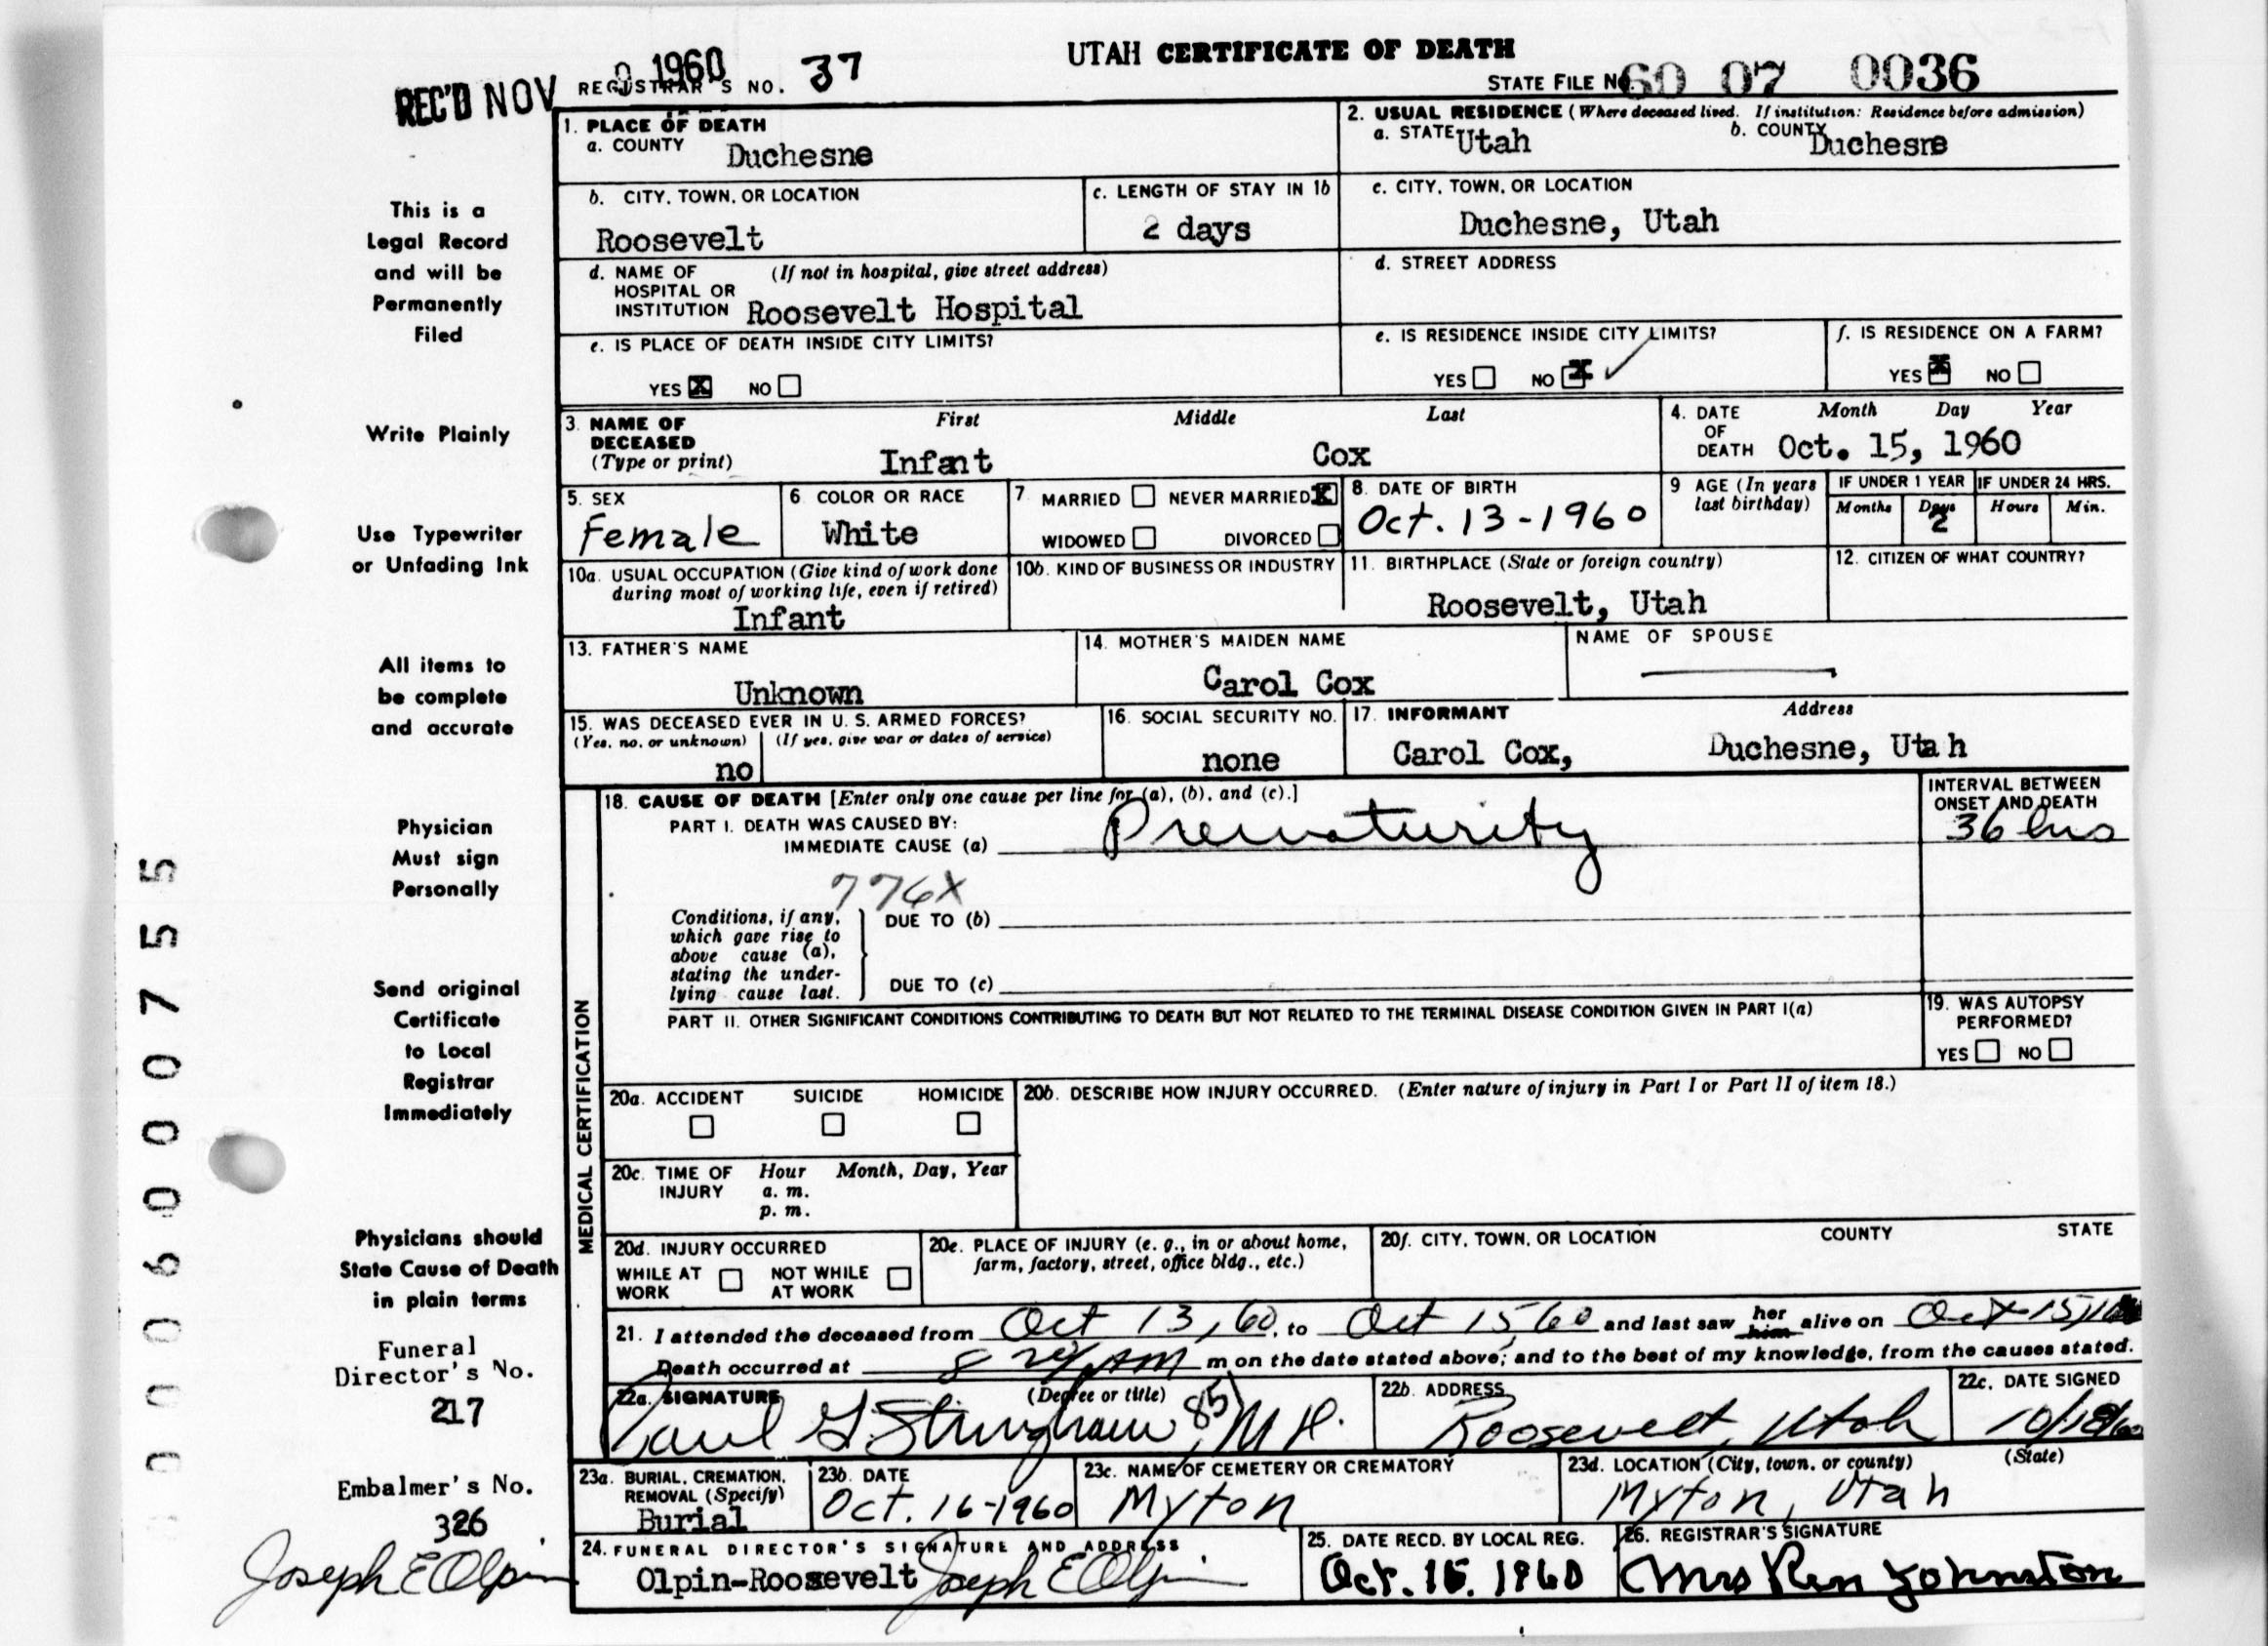 UTAH CERTIFICATE OF DEATH
REC'D NOV 9 1960
REGISTRAR'S NO. 37
STATE FILE NO. 60 07 0036
1. PLACE OF DEATH
a. COUNTY Duchesne
2. USUAL RESIDENCE (Where deceased lived. If institution: Residence before admission)
a. STATE Utah b. COUNTY Duchesne
b. CITY, TOWN, OR LOCATION
Roosevelt
c. LENGTH OF STAY IN 1b
2 days
c. CITY, TOWN, OR LOCATION
Duchesne, Utah
d. NAME OF HOSPITAL OR INSTITUTION (If not in hospital, give street address)
Roosevelt Hospital
d. STREET ADDRESS
e. IS PLACE OF DEATH INSIDE CITY LIMITS?
YES X NO
e. IS RESIDENCE INSIDE CITY LIMITS?
YES NO X ✓
f. IS RESIDENCE ON A FARM?
YES X NO
3. NAME OF DECEASED (Type or print)
First Middle Last
Infant Cox
4. DATE OF DEATH Month Day Year
Oct. 15, 1960
5. SEX
Female
6. COLOR OR RACE
White
7. MARRIED NEVER MARRIED X
WIDOWED DIVORCED
8. DATE OF BIRTH
Oct. 13-1960
9. AGE (In years last birthday)
IF UNDER 1 YEAR IF UNDER 24 HRS.
Months Days Hours Min.
2
10a. USUAL OCCUPATION (Give kind of work done during most of working life, even if retired)
Infant
10b. KIND OF BUSINESS OR INDUSTRY
11. BIRTHPLACE (State or foreign country)
Roosevelt, Utah
12. CITIZEN OF WHAT COUNTRY?
13. FATHER'S NAME
Unknown
14. MOTHER'S MAIDEN NAME
Carol Cox
NAME OF SPOUSE
15. WAS DECEASED EVER IN U. S. ARMED FORCES?
(Yes, no, or unknown) (If yes, give war or dates of service)
no
16. SOCIAL SECURITY NO.
none
17. INFORMANT Address
Carol Cox, Duchesne, Utah
MEDICAL CERTIFICATION
18. CAUSE OF DEATH [Enter only one cause per line for (a), (b), and (c).]
PART I. DEATH WAS CAUSED BY:
IMMEDIATE CAUSE (a) Prematurity
INTERVAL BETWEEN ONSET AND DEATH
36 hrs
776X
Conditions, if any, which gave rise to above cause (a), stating the underlying cause last.
DUE TO (b)
DUE TO (c)
PART II. OTHER SIGNIFICANT CONDITIONS CONTRIBUTING TO DEATH BUT NOT RELATED TO THE TERMINAL DISEASE CONDITION GIVEN IN PART I(a)
19. WAS AUTOPSY PERFORMED?
YES NO
20a. ACCIDENT SUICIDE HOMICIDE
20b. DESCRIBE HOW INJURY OCCURRED. (Enter nature of injury in Part I or Part II of item 18.)
20c. TIME OF INJURY Hour Month, Day, Year
a. m.
p. m.
20d. INJURY OCCURRED
WHILE AT WORK NOT WHILE AT WORK
20e. PLACE OF INJURY (e. g., in or about home, farm, factory, street, office bldg., etc.)
20f. CITY, TOWN, OR LOCATION COUNTY STATE
21. I attended the deceased from Oct 13, 60, to Oct 15, 60 and last saw her him alive on Oct 15,
Death occurred at 8 AM m on the date stated above; and to the best of my knowledge, from the causes stated.
22a. SIGNATURE (Degree or title)
Paul G Stringham 85 M D.
22b. ADDRESS
Roosevelt, Utah
22c. DATE SIGNED
10/18/60
23a. BURIAL, CREMATION, REMOVAL (Specify)
Burial
23b. DATE
Oct. 16-1960
23c. NAME OF CEMETERY OR CREMATORY
Myton
23d. LOCATION (City, town, or county) (State)
Myton, Utah
24. FUNERAL DIRECTOR'S SIGNATURE AND ADDRESS
Olpin-Roosevelt Joseph E Olpin
25. DATE RECD. BY LOCAL REG.
Oct. 15. 1960
26. REGISTRAR'S SIGNATURE
Mrs Ren Johnston
This is a
Legal Record
and will be
Permanently
Filed
Write Plainly
Use Typewriter
or Unfading Ink
All items to
be complete
and accurate
Physician
Must sign
Personally
Send original
Certificate
to Local
Registrar
Immediately
Physicians should
State Cause of Death
in plain terms
Funeral
Director's No.
217
Embalmer's No.
326
Joseph E Olpin
000600755